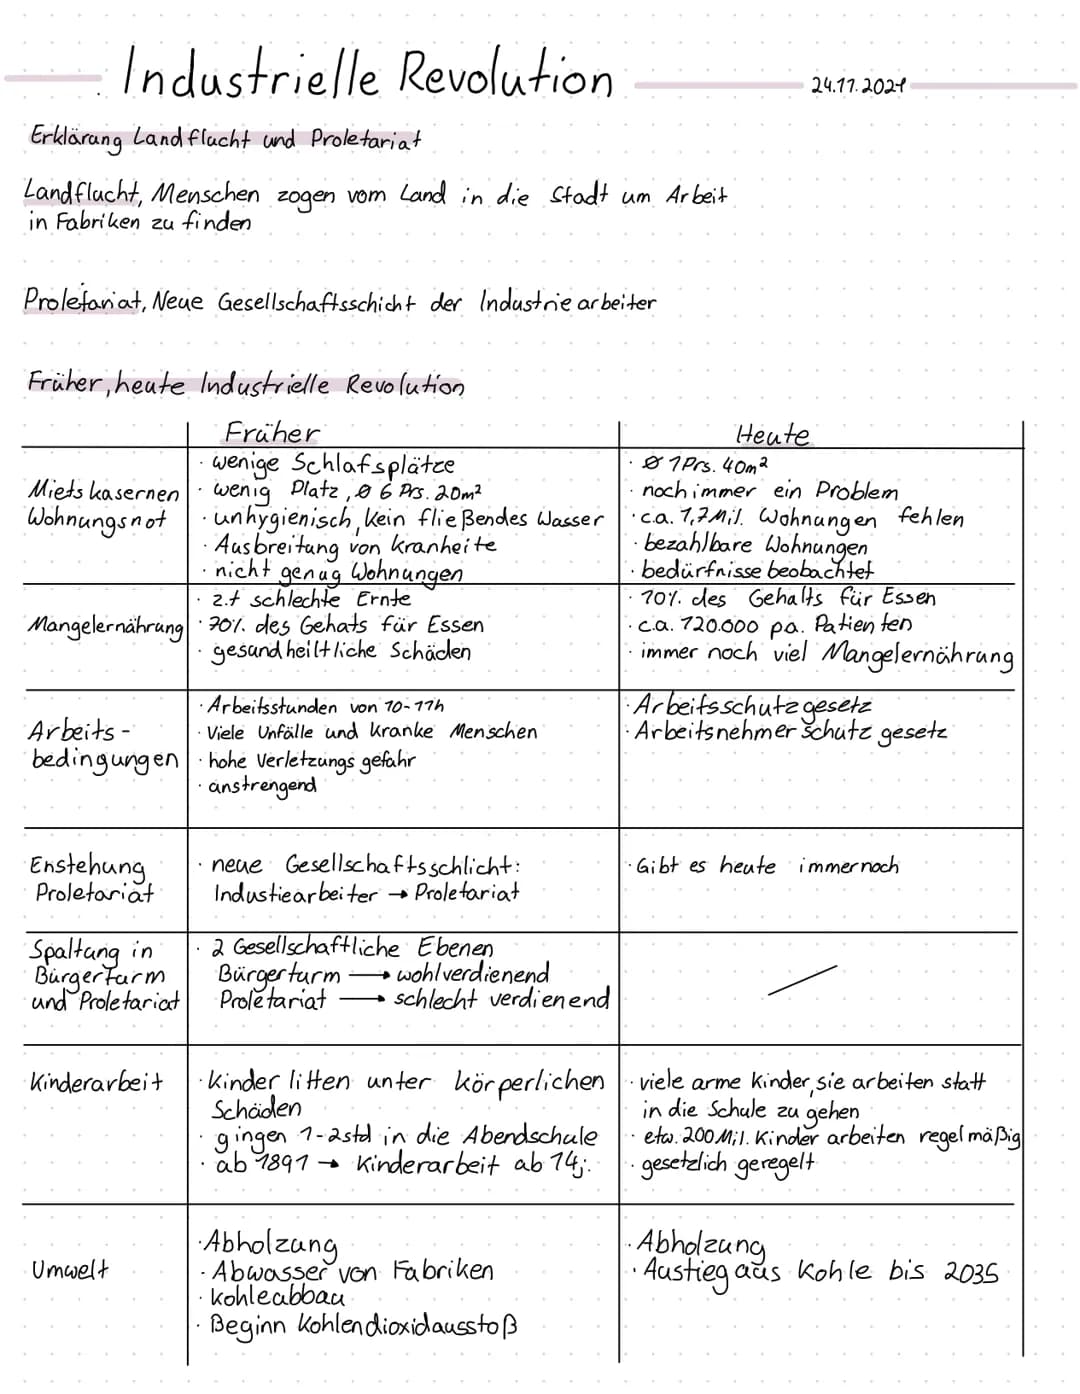 Industrielle Revolution
24.11.2021
Erklärung Landflucht und Proletariat
Landflucht, Menschen zogen vom Land in die Stadt um Arbeit
in Fabriken zu finden
Proletariat, Neue Gesellschaftsschicht der Industriearbeiter
Früher, heute Industrielle Revolution
Früher
Heute
Mietskasernen
Wohnungsnot
· wenige Schlafsplätze
· wenig Platz, ø 6 Prs. 20m²
· unhygienisch, kein fließendes Wasser
· Ausbreitung von Kranheite
· nicht genug Wohnungen
· ø 1Prs. 40m²
· noch immer ein Problem
· c.a. 1,7Mil. Wohnungen fehlen
· bezahlbare Wohnungen
· bedürfnisse beobachtet
Mangelernährung
· z.t schlechte Ernte
· 70% des Gehats für Essen
· gesundheiltliche Schäden
· 10% des Gehalts für Essen
· c.a. 120.000 pa. Patienten
· immer noch viel Mangelernährung
Arbeits-
bedingungen
· Arbeitsstunden von 10-11h
· Viele Unfälle und kranke Menschen
· hohe Verletzungsgefahr
· anstrengend
· Arbeitsschutzgesetz
· Arbeitsnehmerschutzgesetz
Enstehung
Proletariat
· neue Gesellschaftsschlicht:
Industiearbeiter → Proletariat
· Gibt es heute immernoch
Spaltung in
Bürgerturm
und Proletariat
· 2 Gesellschaftliche Ebenen
Bürgerturm → wohlverdienend
Proletariat → schlecht verdienend
Kinderarbeit
· Kinder litten unter körperlichen
Schäden
· gingen 1-2std in die Abendschule
· ab 1891 → Kinderarbeit ab 14j.
· viele arme Kinder, sie arbeiten statt
in die Schule zu gehen
· etw. 200 Mil. Kinder arbeiten regelmäßig
· gesetzlich geregelt
Umwelt
· Abholzung
· Abwasser von Fabriken
· Kohleabbau
· Beginn Kohlendioxidausstoß
· Abholzung
· Austieg aus Kohle bis 2035